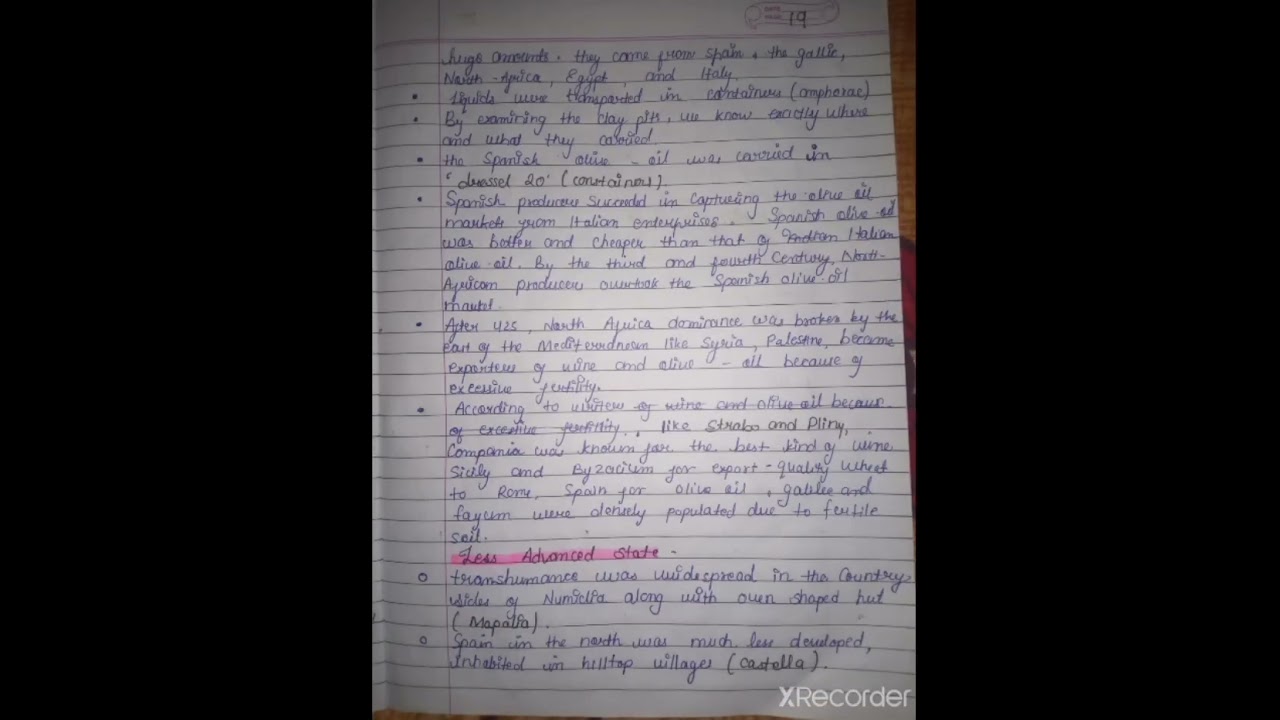 DATE
PAGE 19
huge amounts. they come from Spain, the gallic,
North-Africa, Egypt, and Italy.
• Liquids were transported in containers (amphorae)
• By examining the clay pits, we know exactly where
and what they carried.
• the Spanish olive-oil was carried in
'dressel 20' (containers).
• Spanish producers Succeedd in Capturing the olive oil
markets from Italian enterprises. Spanish olive-oil
was better and cheaper than that of Indian Italian
olive-oil. By the third and fourth Century, North-
African producers overtook the Spanish olive-oil
market.
• After 425, North Africa dominance was broken by the
east of the Mediterranean like Syria, Palestine, became
exporters of wine and olive-oil because of
excessive fertility.
• According to writers of wine and olive oil because
of excessive fertility., like Strabo and Pliny,
Compania was known for the best kind of wine
Sicily and Byzacium for export-quality wheat
to Rome, Spain for olive oil, galilee and
fayum were densely populated due to fertile
soil.
Less Advanced State -
○ transhumance was widespread in the Country-
sides of Numidia along with oven shaped hut
(Mapalia).
○ Spain in the north was much less developed,
inhabited in hilltop villages (castella).
XRecorder